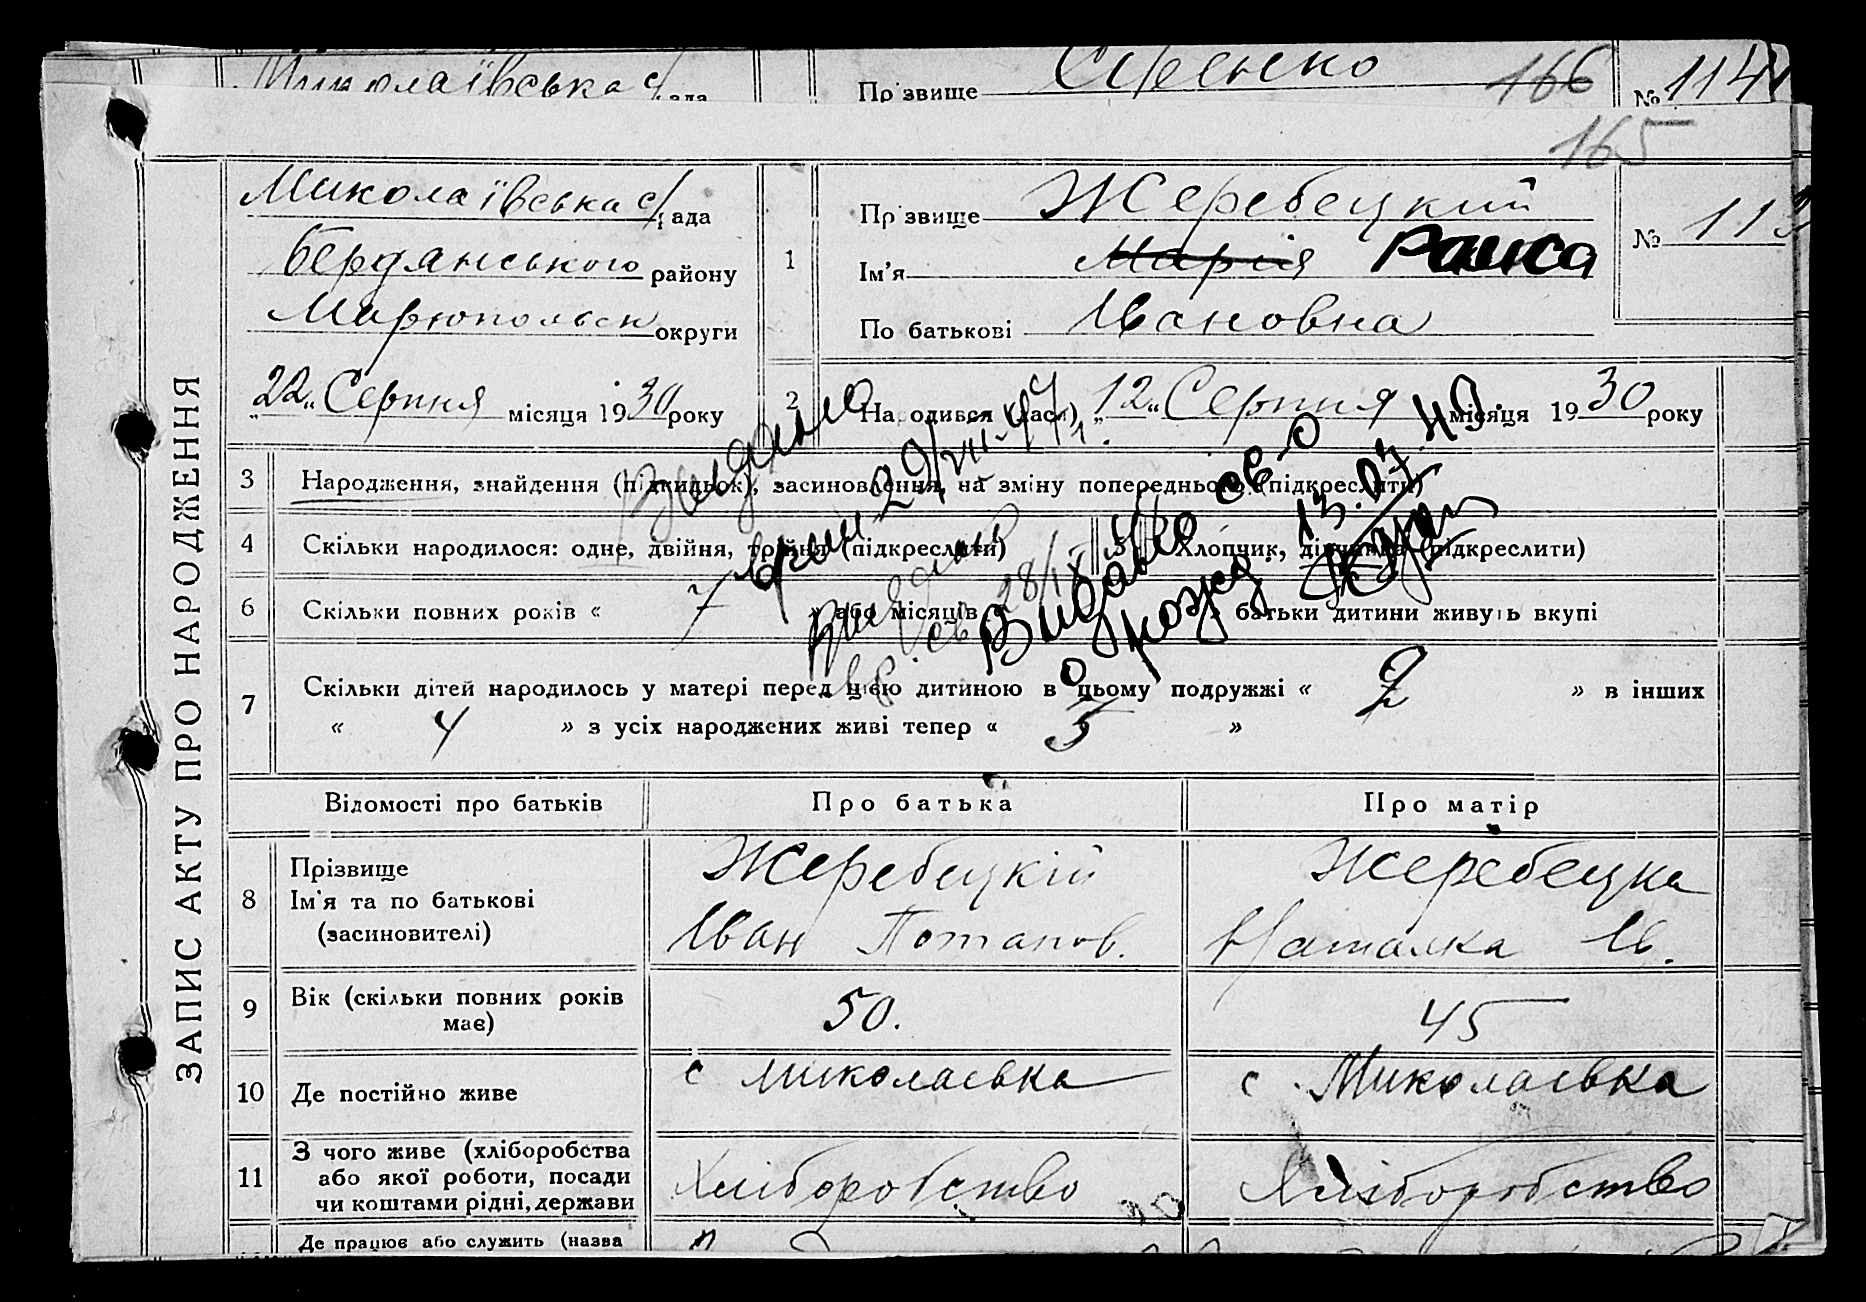 Миколаївська с/рада
Прізвище Єфенко 166
№ 114
165
ЗАПИС АКТУ ПРО НАРОДЖЕННЯ
Миколаївська с/рада
Бердянського району
Маріюпольськ округи
„22“ Серпня місяця 1930 року
1
Прізвище Жеребецкий
Ім'я Марія Раиса
По батькові Ивановна
№ 11
2 Народився (лася) „12“ Серпня місяця 1930 року
3 Народження, знайдення (підкидьок), засиновлення, на зміну попереднього (підкреслити)
4 Скільки народилося: одне, двійня, тройня (підкреслити) 5 Хлопчик, дівчинка (підкреслити)
6 Скільки повних років « 7 » або місяців батьки дитини живуть вкупі
7 Скільки дітей народилось у матері перед цією дитиною в цьому подружжі « 2 » в інших
« 4 » з усіх народжених живі тепер « 5 »
Видано св-о
о рожд. 13.07.49
28/IX
Відомості про батьків Про батька Про матір
8 Прізвище Ім'я та по батькові (засиновителі)
Жеребецкій Іван Потапов.
Жеребецка Наталка Ив.
9 Вік (скільки повних років має) 50. 45
10 Де постійно живе с Миколаєвка с. Миколаєвка
11 З чого живе (хліборобства або якої роботи, посади чи коштами рідні, держави
Хліборобство Хліборобство
Де працює або служить (назва